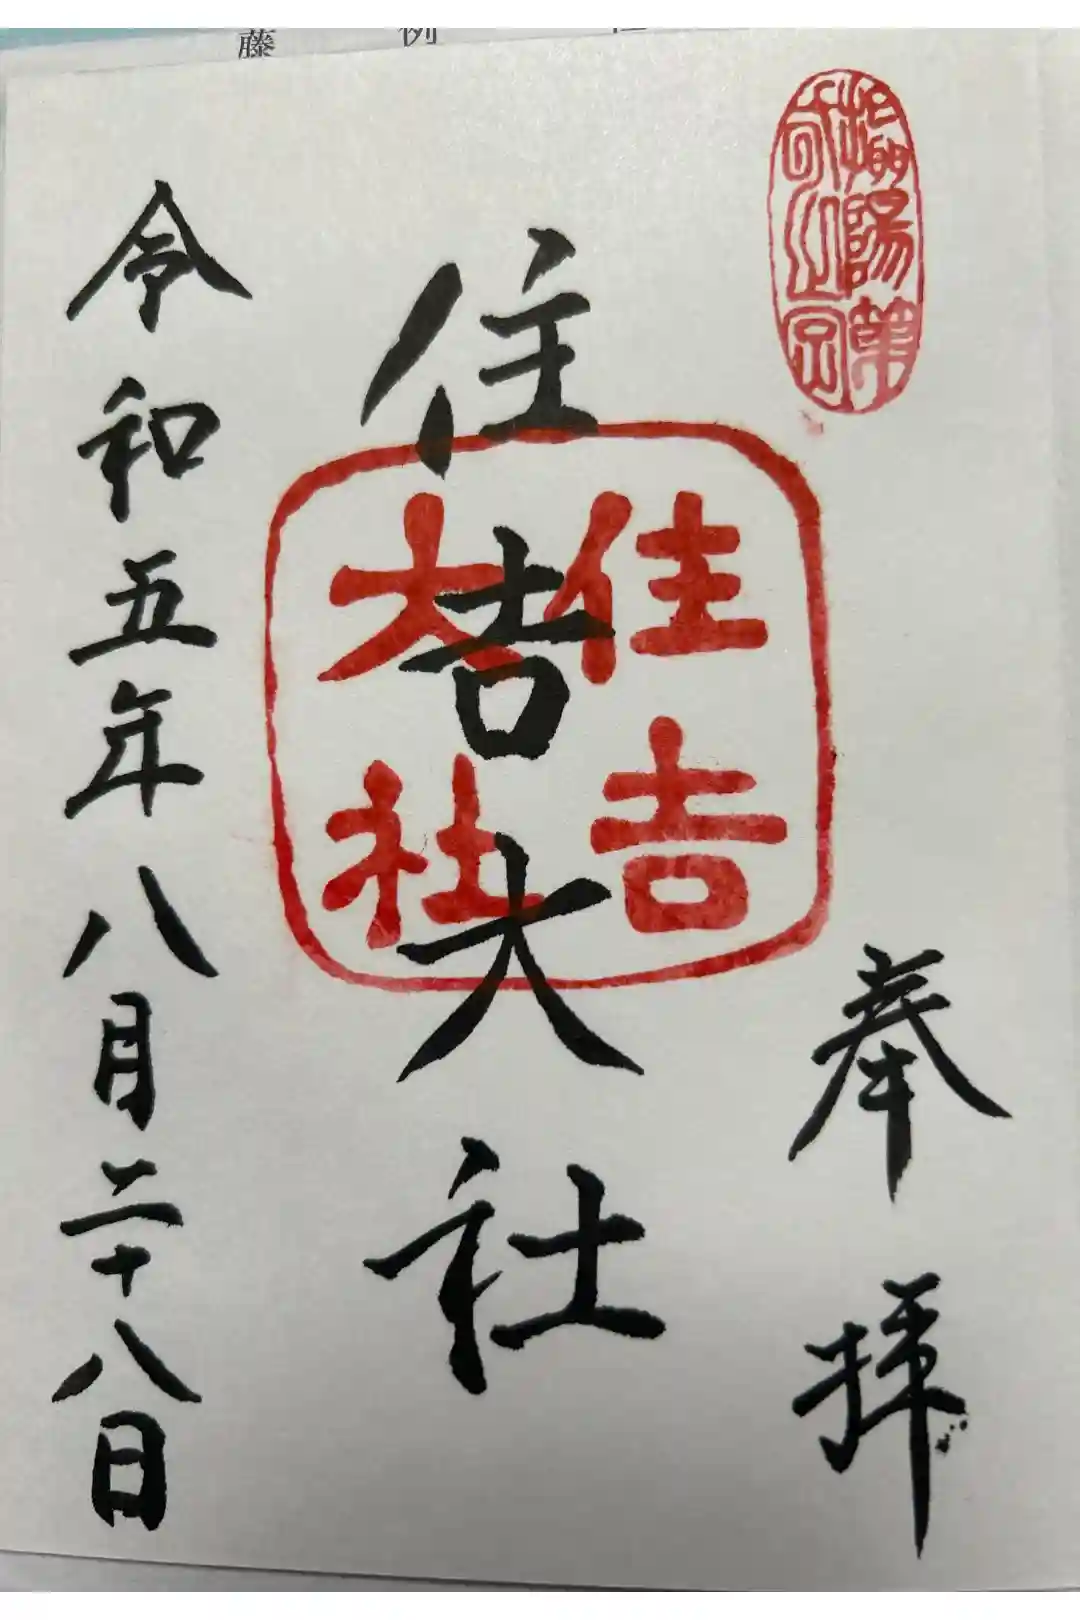 奉拝
住吉大社
住吉
大社
令和五年八月二十八日
藤
例